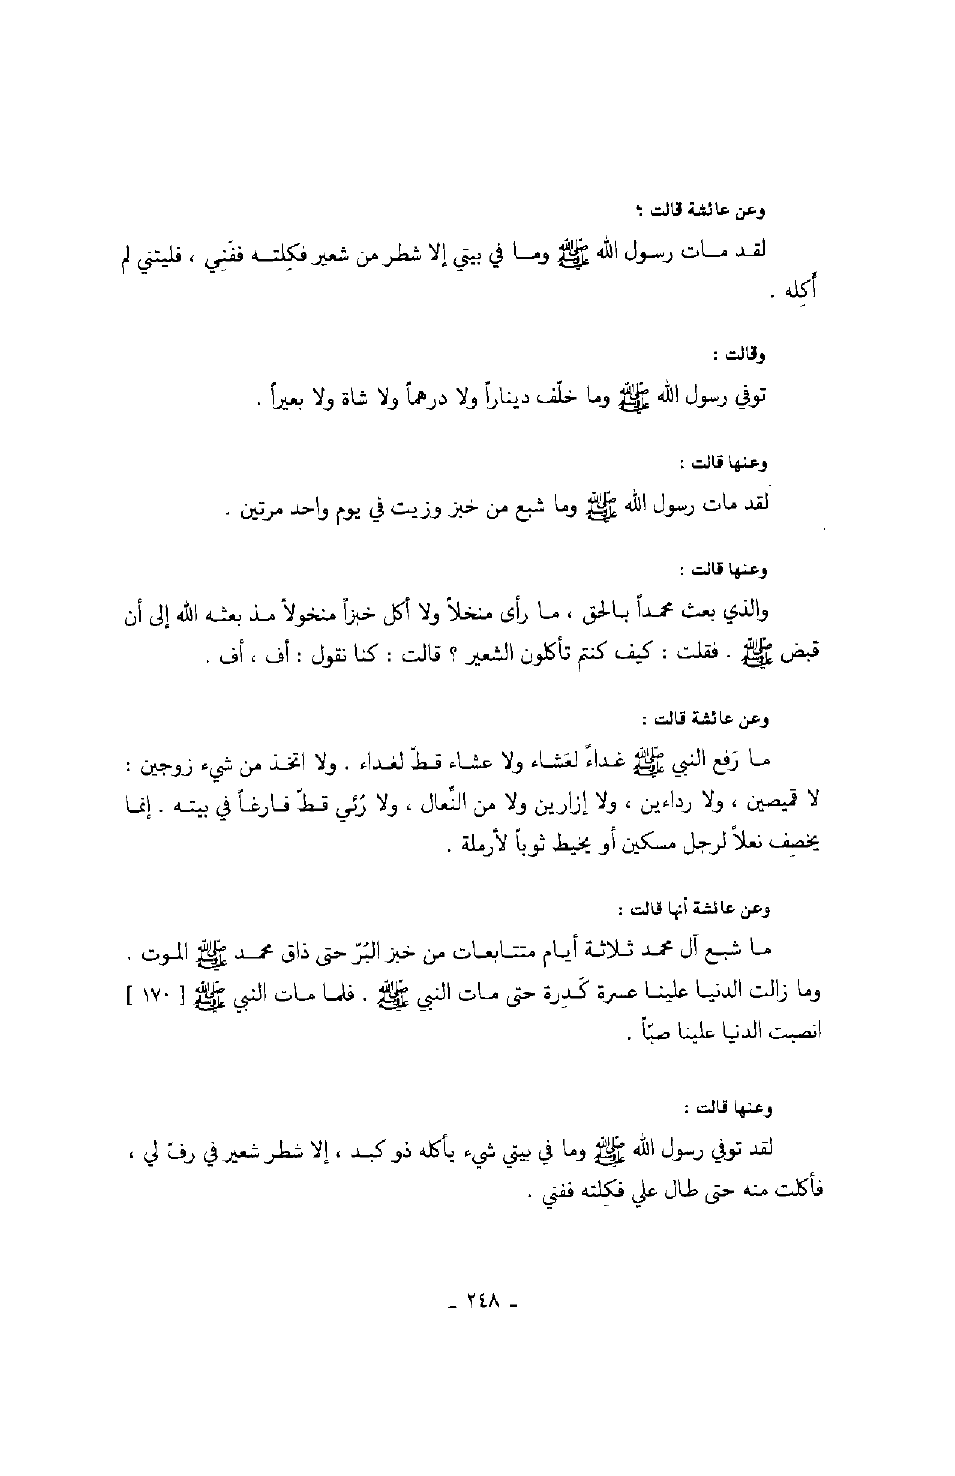 وعن عائشة قالت :
لقد مات رسول الله ﷺ وما في بيتي إلا شطر من شعير فكِلته ففَنِي ، فليتني لم
أكِله .
وقالت :
توفي رسول الله ﷺ وما خلّف ديناراً ولا درهماً ولا شاة ولا بعيراً .
وعنها قالت :
لقد مات رسول الله ﷺ وما شبع من خبز وزيت في يوم واحد مرتين .
وعنها قالت :
والذي بعث محمداً بالحق ، ما رأى منخلاً ولا أكل خبزاً منخولاً مذ بعثه الله إلى أن
قبض ﷺ . فقلت : كيف كنتم تأكلون الشعير ؟ قالت : كنا نقول : أف ، أف .
وعن عائشة قالت :
ما رَفع النبي ﷺ غداءً لعَشاء ولا عشاء قطّ لغداء . ولا اتخذ من شيء زوجين :
لا قميصين ، ولا رداءين ، ولا إزارين ولا من النِّعال ، ولا رُئي قطّ فارغاً في بيته . إنما
يخصِف نعلاً لرجل مسكين أو يخيط ثوباً لأرملة .
وعن عائشة أنها قالت :
ما شبع آل محمد ثلاثة أيام متتابعات من خبز البُرّ حتى ذاق محمد ﷺ الموت .
وما زالت الدنيا علينا عسرة كَدِرة حتى مات النبي ﷺ . فلما مات النبي ﷺ [ ١٧٠ ]
انصبت الدنيا علينا صبّاً .
وعنها قالت :
لقد توفي رسول الله ﷺ وما في بيتي شيء يأكله ذو كبد ، إلا شطر شعير في رفّ لي ،
فأكلت منه حتى طال علي فكِلته ففني .
ـ ٢٤٨ ـ